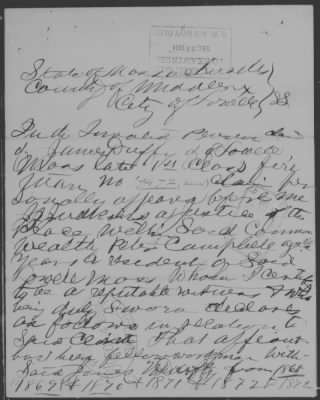 DEC 20 1889
State of Massachusetts
County of Middlesex } SS
City of Lowell
In the Invalid Pension claim
of James Duffy of Lowell
Mass late 1st Class fire
man No
sonally appeared before me
a justice of the
Peace within Said Common
Wealth Peter Campbell aged
years a resident of Said
Lowell Mass Whom I Certify
to be a reputable witness & who
being duly Sworn declares
as follows in relation to
Said Claim That affeant
has been fellow workman with
Said James Duffy from 1868
1869 & 1870 & 1871 & 1872